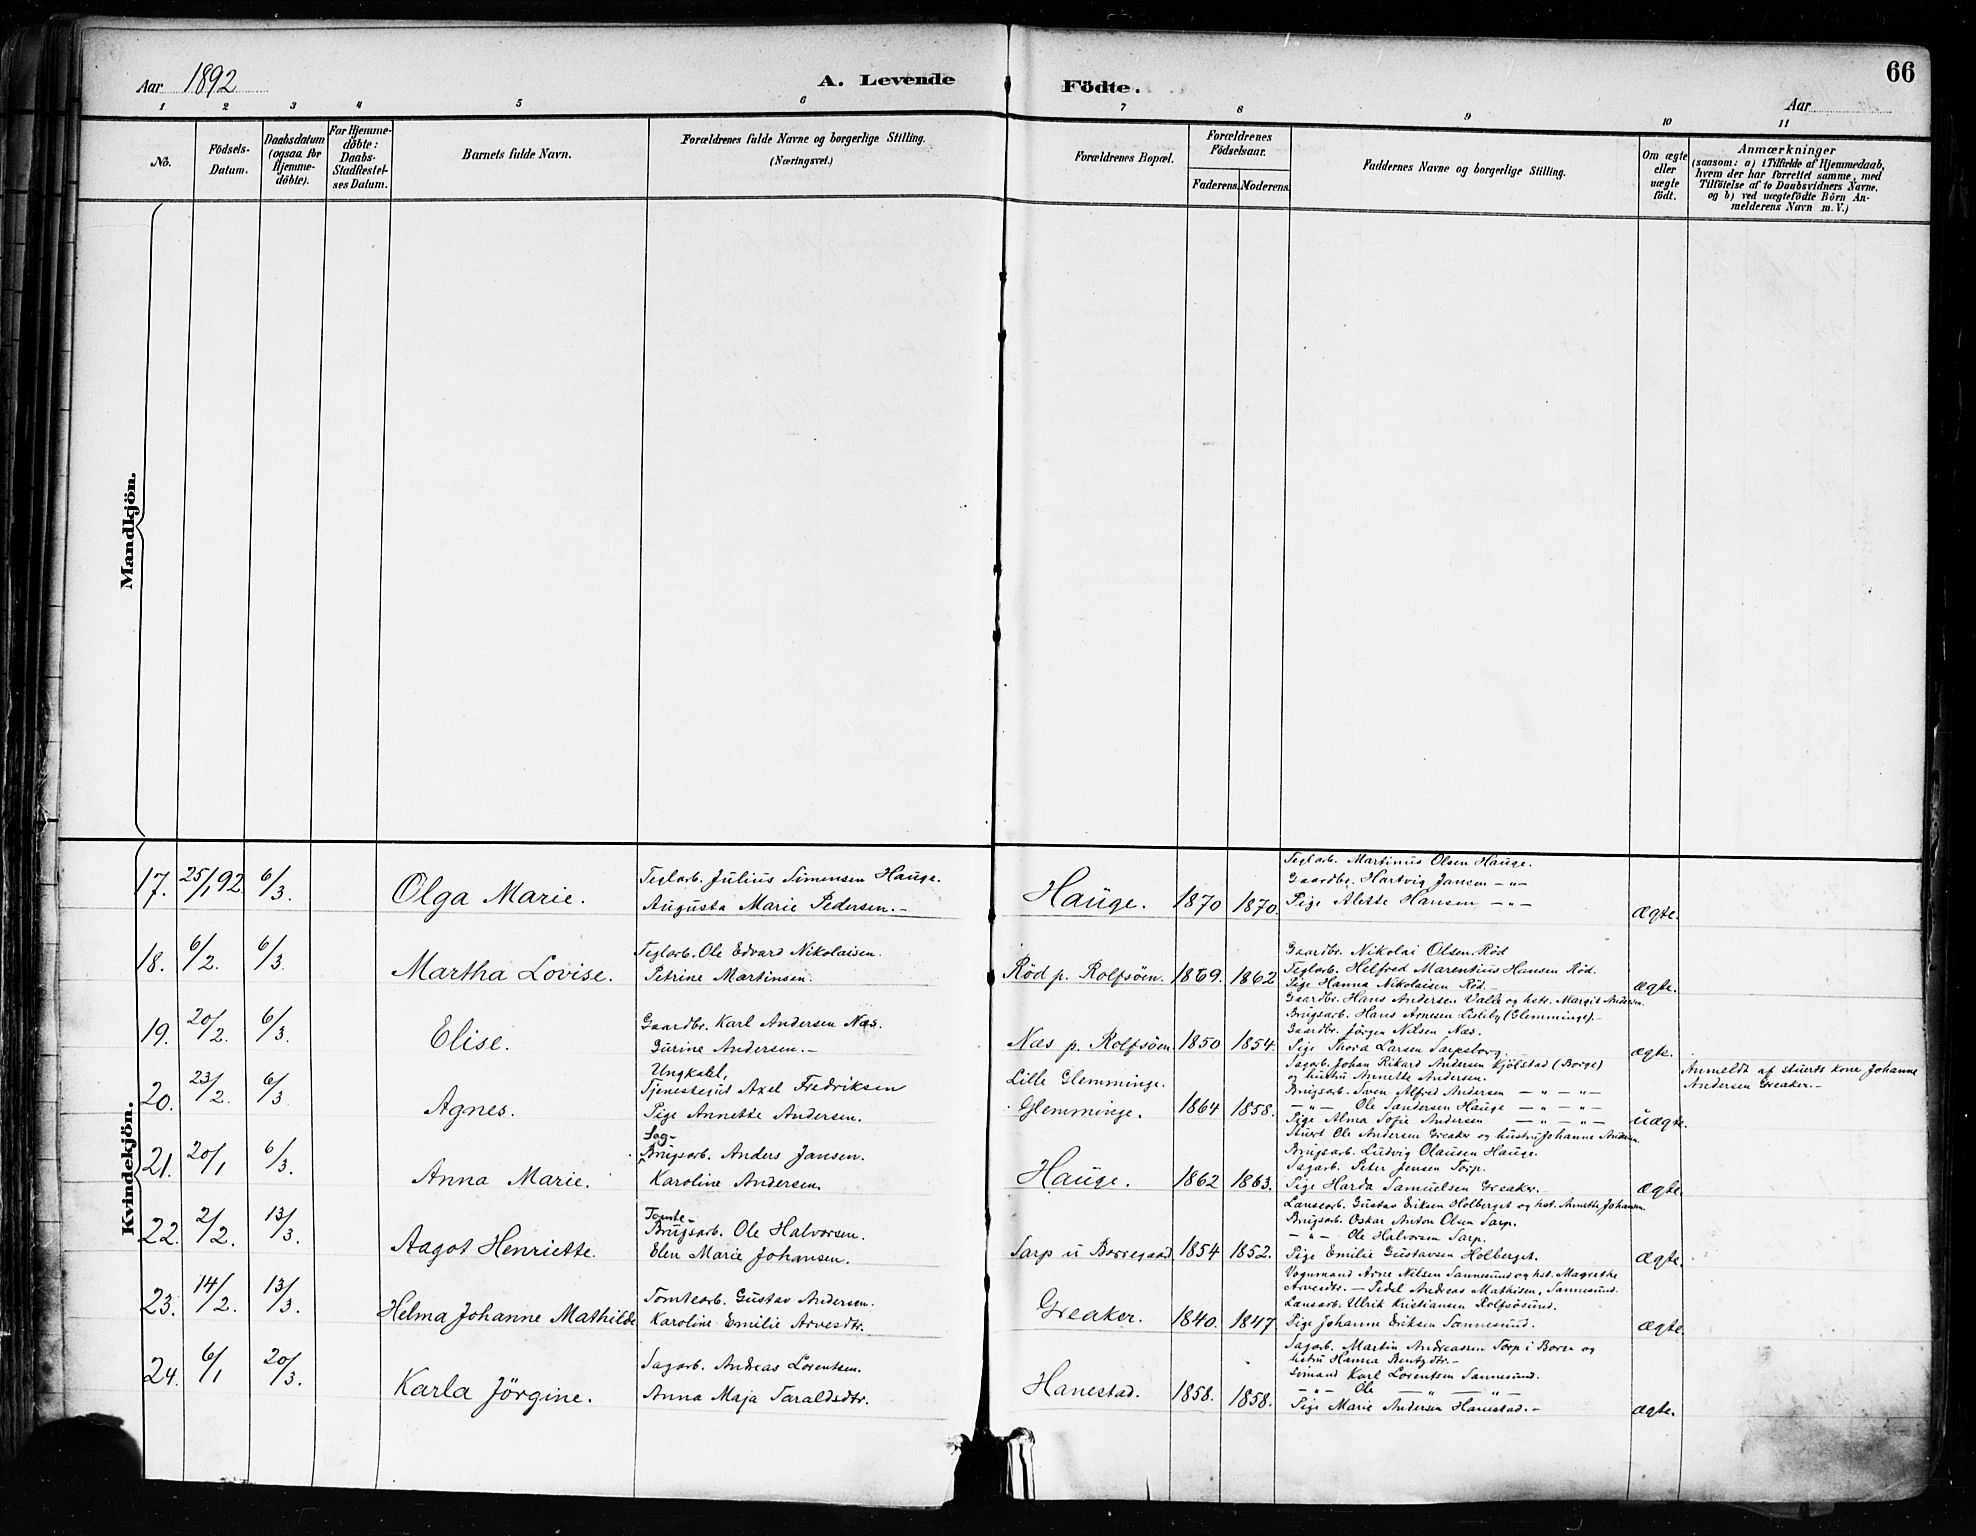 66
Aar 1892
A. Levende
Födte.
Aar
1 2 3 4 5 6 7 8 9 10 11
No.
Födsels-Datum.
Daabsdatum (ogsaa for Hjemme-döbte).
For Hjemme-döbte: Daabs-Stadfæstel-ses Datum.
Barnets fulde Navn.
Forældrenes fulde Navne og borgerlige Stilling.
(Næringsvei.)
Forældrenes Bopæl.
Forældrenes Födselsaar.
Faderens. Moderens.
Faddernes Navne og borgerlige Stilling.
Om ægte eller uægte födt.
Anmærkninger
(saasom: a) i Tilfælde af Hjemmedaab,
hvem der har forrettet samme, med
Tilföielse af to Daabsvidners Navne.
og b) ved uægtefödte Börn An-
melderens Navn m. V.)
Mandkjön.
Kvindekjön.
17. 25/1 92 6/3. Olga Marie.
Teglarb. Julius Simensen Hauge.
Augusta Marie Pedersen.-
Hauge. 1870 1870.
Teglarb. Martinus Olsen Hauge.
Gaardbr. Hartvig Jansen -"-
Pige Alette Hansen -"-
ægte.
18. 6/2. 6/3. Martha Lovise.
Teglarb. Ole Edvard Nikolaisen.
Petrine Martinsen.
Röd p. Rolfsöen. 1869. 1862
Gaardbr. Nikolai Olsen Röd
Teglarb. Helfred Marentius Hansen Röd.
Pige Hanna Nikolaisen Röd.-
ægte.
19. 20/2. 6/3. Elise.
Gaardbr. Karl Andersen Næs.
Gurine Andersen.-
Næs p. Rolfsöen 1850 1854.
Gaardbr. Hans Andersen Valle og hstr. Margit Andersen.
Brugsarb. Hans Arnesen Lisleby (Glemminge).-
Gaardbr. Jörgen Nilsen Næs.
Pige Thora Larsen Sarpsborg.
ægte.
20. 23/2. 6/3. Agnes.
Ungkarl,
Tjenestegut Axel Fredriksen
Pige Annette Andersen.
Lille Glemminge.
Glemminge. 1864 1858.
Sagarb. Johan Rikard Andersen Kjölstad (Borge)
og hustru Annette Andersen.
Brugsarb. Sven Alfred Andersen -"-"-
-"- Ole Sandersen Hauge -"-"-
Pige Alma Sofie Andersen -"-"-
uægte.
Anmeldt af stuerts kone Johanne
Andersen Greaker.-
21. 20/1 6/3. Anna Marie.
Sag-
Brugsarb. Anders Jansen.
Karoline Andersen.
Hauge. 1862 1863.
Stuert Ole Andersen Greaker og hustru Johanne Anders.
Brugsarb. Ludvig Olausen Hauge.
Sagarb. Peter Jensen Torp.
Pige Harda Samuelsen Greaker.-
ægte.
22. 2/2. 13/3. Aagot Henriette.
Tomte-
Brugsarb. Ole Halvorsen.
Elen Marie Johansen.
Sarp u Borregaard 1854 1852.
Lansearb. Gustav Eriksen Holberget og hst. Annette Johansen.
Brugsarb. Oskar Anton Olsen Sarp.
-"- Ole Halvorsen Sarp.
Pige Emilie Gustavsen Holberget.
ægte.
23. 14/2. 13/3. Helma Johanne Mathilde
Tomtearb. Gustav Andersen.
Karoline Emilie Arvesdtr.
Greaker. 1840. 1847
Vognmand Arne Nilsen Sannesund og hst. Magrethe
Arvesdtr. - Pedel Andreas Mathisen, Sannesund.
Lansarb. Ulrik Kristiansen Rolfsösund.
Pige Johanne Eriksen Sannesund.
ægte.
24. 6/1 20/3. Karla Jörgine.
Sagarb. Andreas Lorentsen.
Anna Maja Taraldsdtr.
Hanestad. 1858. 1858.
Sagarb. Martin Andreassen Torp i Borge og
hstru Hanna Bentzdtr.-
Sömand Karl Lorentsen Sannesund.
-"- Ole -"- -"-
Pige Marie Andersen Hanestad.-
ægte.